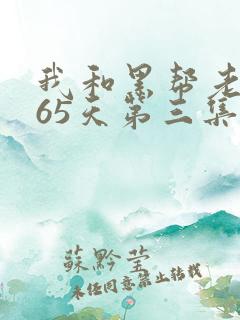 我和黑帮老
65天第三集
蘇黔莹
未经同意禁止转载